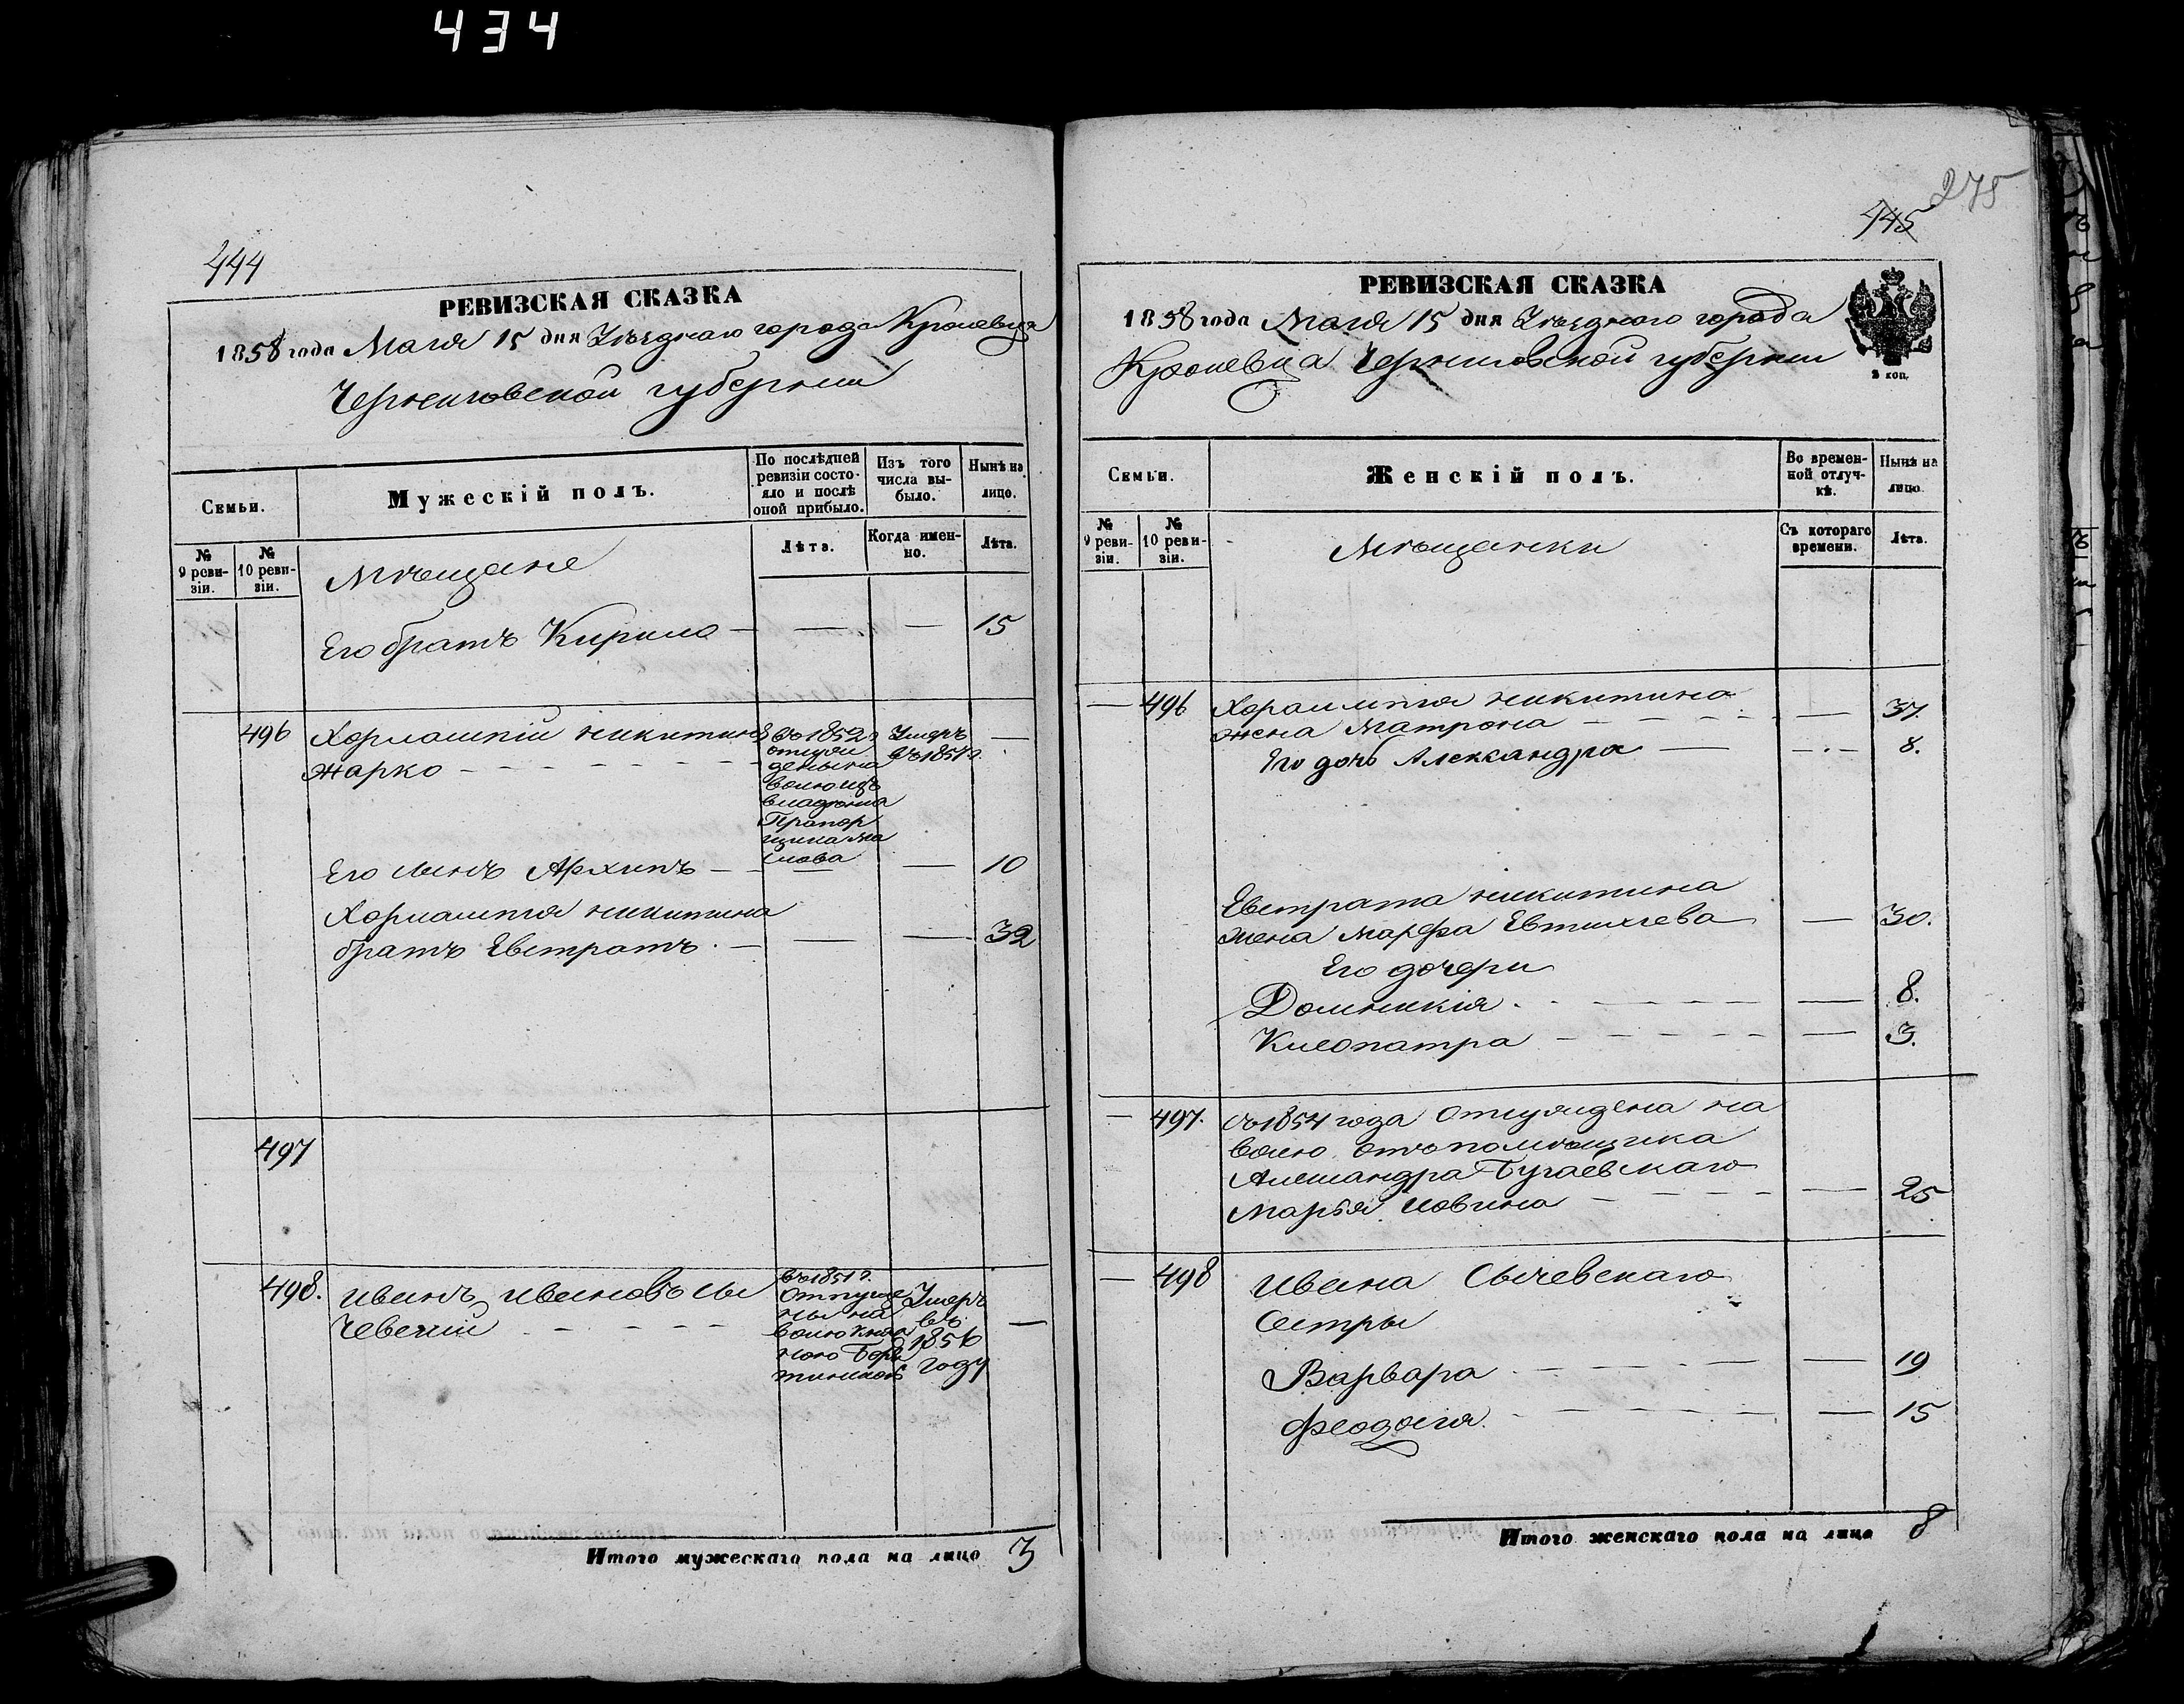 434
444
РЕВИЗСКАЯ СКАЗКА
1858 года Маія 15 дня Уѣзднаго города Кролевца
Черниговской губерніи
Семьи.
Мужескій полъ.
По послѣдней ревизіи состояло и послѣ оной прибыло.
Изъ того числа выбыло.
Нынѣ на лицо.
№ 9 ревизіи.
№ 10 ревизіи.
Мѣщане
Лѣта.
Когда именно.
Лѣта.
Его братъ Кирило — — — 15
496 Никитинъ
Жарко
въ 1852 г.
на
волю изъ
владѣнія
Прапор
щика Ма
слова
Умеръ
въ 1857 г.
—
Его сынъ Архипъ — — — 10
Никитина
братъ Евстратъ — — — 32
497
498. Иванъ Ивановъ Сы
чевскій
въ 1851 г.
отпуще
ны на
волю княж
ною
Умеръ
въ
1856
году
—
Итого мужескаго пола на лицо 3
275
445
РЕВИЗСКАЯ СКАЗКА
1858 года Маія 15 дня Уѣзднаго города
Кролевца Черниговской губерніи
2 коп.
Семьи.
Женскій полъ.
Во временной отлучкѣ.
Нынѣ на лицо.
№ 9 ревизіи.
№ 10 ревизіи.
Мѣщанки
Съ котораго времени.
Лѣта.
— 496 Никитина
жена Матрона — 37.
Его дочь Александра — 8.
Евстрата Никитина
жена Марфа Евтихіева — 30.
Его дочери
Домникія — 8.
Клеопатра — 3.
— 497. Съ 1854 года отпущена на
волю отъ помѣщика
Александра Бугаевскаго
Марья Іовина — 25
— 498 Ивана Сычевскаго
Сестры
Варвара — 19
Феодосія — 15
Итого женскаго пола на лицо 8